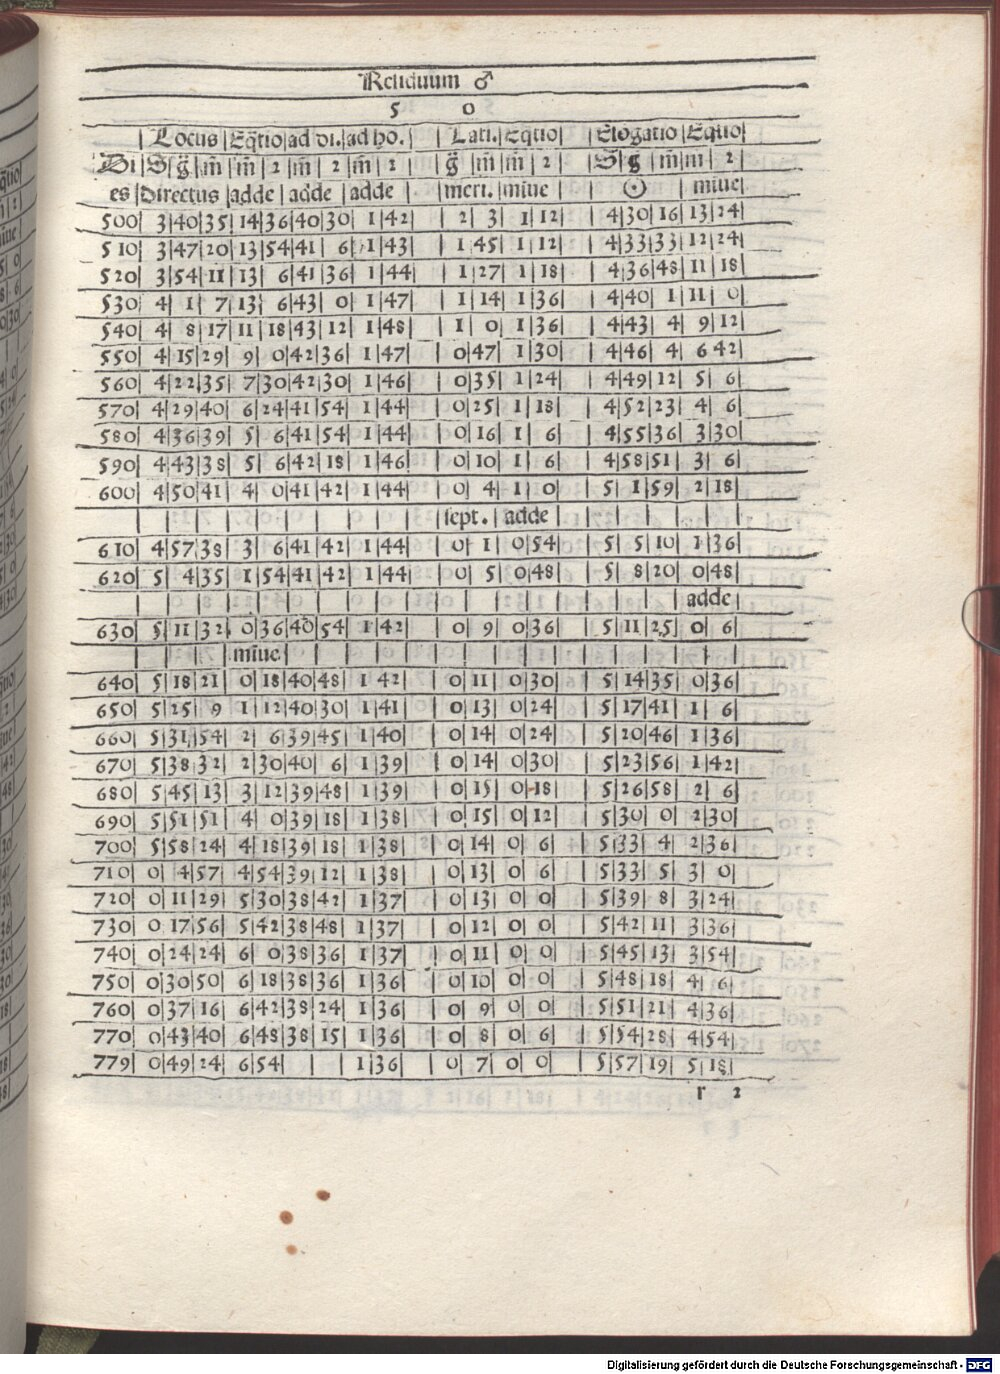 Residuum ♂
5 0
| Locus | Eq̃tio | ad di. | ad ho. | | Lati. | Eq̃tio | | Elõgatio | Equo |
Di | S | g̃ | m̃ | m̃ | 2 | m̃ | 2 | m̃ | 2 | | g̃ | m̃ | m̃ | 2 | | S | g | m̃ | m | 2
es | Directus | adde | adde | adde | | meri. | miũe | | ☉ | miũe |
500| 3|40|35| 14|36|40|30| 1|42| | 2| 3| 1|12| | 4|30|16|13|24|
510| 3|47|20| 13|54|41| 6| 1|43| | 1|45| 1|12| | 4|33|33|12|24|
520| 3|54|11| 13| 6|41|36| 1|44| | 1|27| 1|18| | 4|36|48|11|18|
530| 4| 1| 7| 13| 6|43| 0| 1|47| | 1|14| 1|36| | 4|40| 1|11| 0|
540| 4| 8|17| 11|18|43|12| 1|48| | 1| 0| 1|36| | 4|43| 4| 9|12|
550| 4|15|29| 9| 0|42|36| 1|47| | 0|47| 1|30| | 4|46| 4| 6 42|
560| 4|22|35| 7|30|42|30| 1|46| | 0|35| 1|24| | 4|49|12| 5| 6|
570| 4|29|40| 6|24|41|54| 1|44| | 0|25| 1|18| | 4|52|23| 4| 6|
580| 4|36|39| 5| 6|41|54| 1|44| | 0|16| 1| 6| | 4|55|36| 3|30|
590| 4|43|38| 5| 6|42|18| 1|46| | 0|10| 1| 6| | 4|58|51| 3| 6|
600| 4|50|41| 4| 0|41|42| 1|44| | 0| 4| 1| 0| | 5| 1|59| 2|18|
sept. adde
610| 4|57|38| 3| 6|41|42| 1|44| | 0| 1| 0|54| | 5| 5|10| 1|36|
620| 5| 4|35| 1|54|41|42| 1|44| | 0| 5| 0|48| | 5| 8|20| 0|48|
adde
630| 5|11|32| 0|36|40|54| 1|42| | 0| 9| 0|36| | 5|11|25| 0| 6|
miũe
640| 5|18|21| 0|18|40|48| 1|42| | 0|11| 0|30| | 5|14|35| 0|36|
650| 5|25| 9| 1|12|40|30| 1|41| | 0|13| 0|24| | 5|17|41| 1| 6|
660| 5|31|54| 2| 6|39|45| 1|40| | 0|14| 0|24| | 5|20|46| 1|36|
670| 5|38|32| 2|30|40| 6| 1|39| | 0|14| 0|30| | 5|23|56| 1|42|
680| 5|45|13| 3|12|39|48| 1|39| | 0|15| 0|18| | 5|26|58| 2| 6|
690| 5|51|51| 4| 0|39|18| 1|38| | 0|15| 0|12| | 5|30| 0| 2|30|
700| 5|58|24| 4|18|39|18| 1|38| | 0|14| 0| 6| | 5|33| 4| 2|36|
710| 0| 4|57| 4|54|39|12| 1|38| | 0|13| 0| 6| | 5|33| 5| 3| 0|
720| 0|11|29| 5|30|38|42| 1|37| | 0|13| 0| 0| | 5|39| 8| 3|24|
730| 0 17|56| 5|42|38|48| 1|37| | 0|12| 0| 0| | 5|42|11| 3|36|
740| 0|24|24| 6| 0|38|36| 1|37| | 0|11| 0| 0| | 5|45|13| 3|54|
750| 0|30|50| 6|18|38|36| 1|36| | 0|10| 0| 0| | 5|48|18| 4| 6|
760| 0|37|16| 6|42|38|24| 1|36| | 0| 9| 0| 0| | 5|51|21| 4|36|
770| 0|43|40| 6|48|38|15| 1|36| | 0| 8| 0| 6| | 5|54|28| 4|54|
779| 0|49|24| 6|54| | | 1|36| | 0| 7| 0| 0| | 5|57|19| 5|18|
r 2
Digitalisierung gefördert durch die Deutsche Forschungsgemeinschaft - DFG